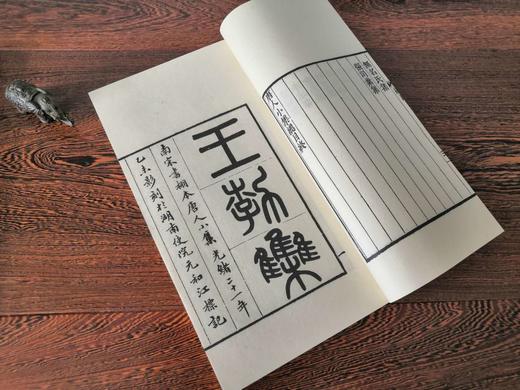 唐人小集總目終
王勃集
南宋書棚本唐人小集光緒二十一年
乙未影刻於湖南使院元和江標記